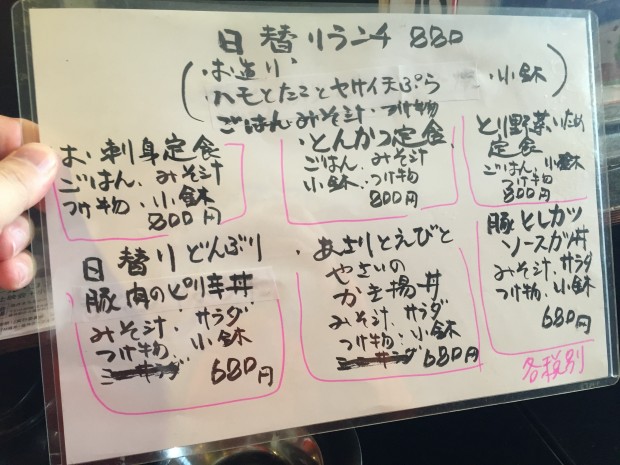 日替りランチ 880
(・お造り ・小鉢)
・ハモとたことヤサイ天ぷら
ごはん みそ汁・つけ物
お刺身定食
ごはん、みそ汁
つけ物・小鉢
800円
・とんかつ定食
ごはん、みそ汁
小鉢、つけ物
800円
とり野菜いため
定食
ごはん、小鉢
つけ物
800円
日替りどんぶり
豚肉のピリ辛丼
みそ汁、サラダ
つけ物、小鉢
680円
・あさりとえびと
やさいの
かき揚丼
みそ汁、サラダ
つけ物・小鉢
680円
豚とじカツ
ソースカツ丼
みそ汁、サラダ
つけ物・小鉢
680円
各税別